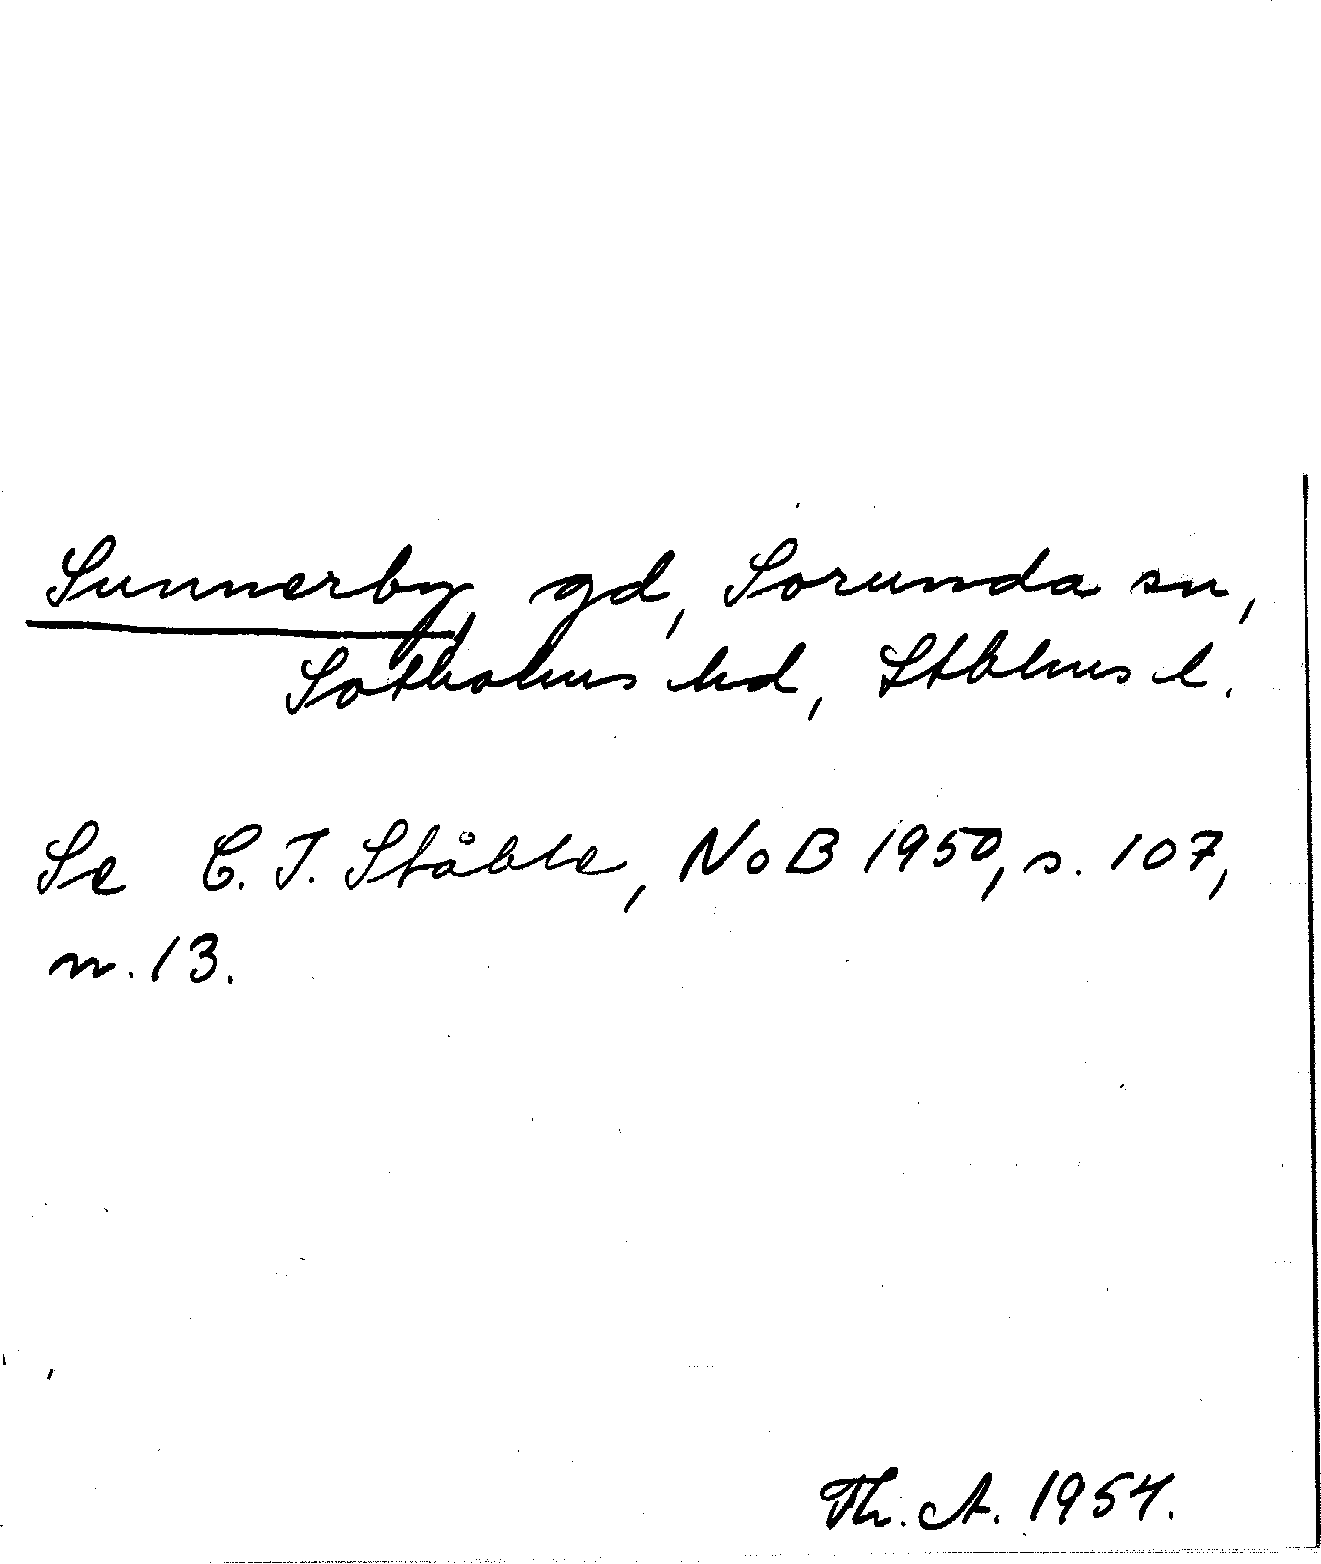 Sunnerby, gd, Sorunda sn,
Sotholms hd, Stblms l.
Se C. I. Ståhle, NoB 1950, s. 107,
n. 13.
Th. A. 1954.